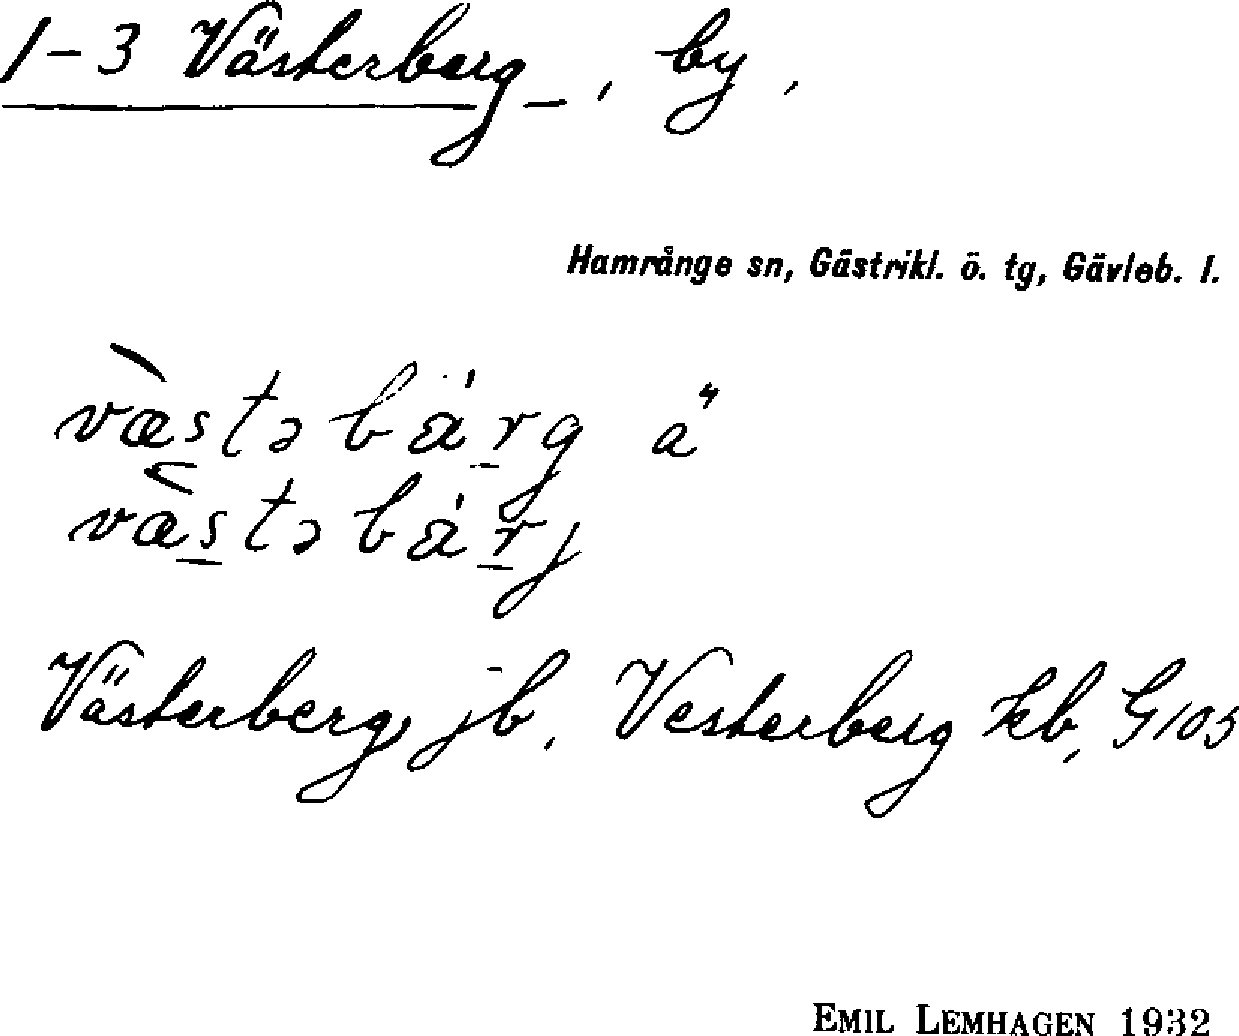 1-3 Västerberg, by,
Hamrånge sn, Gästrikl. ö. tg, Gävleb. l.
væ̀stəbár̲g a"
væ̀s̲təbár̲j
Västerberg jb, Vesterberg kb, G103
EMIL LEMHAGEN 1932